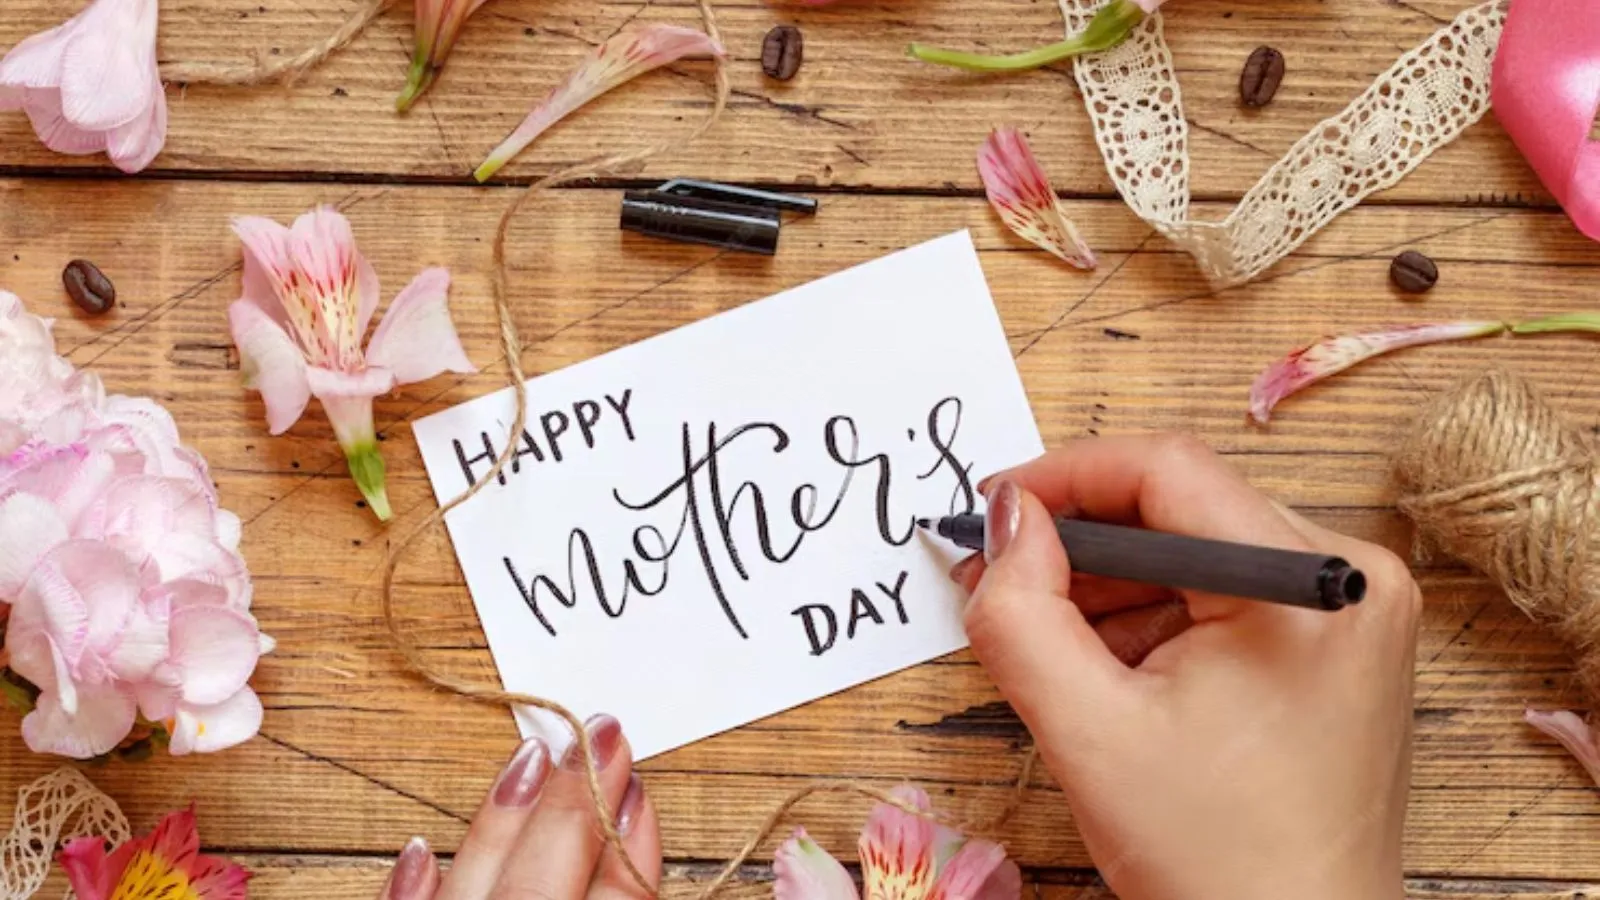 HAPPY
mother's
DAY